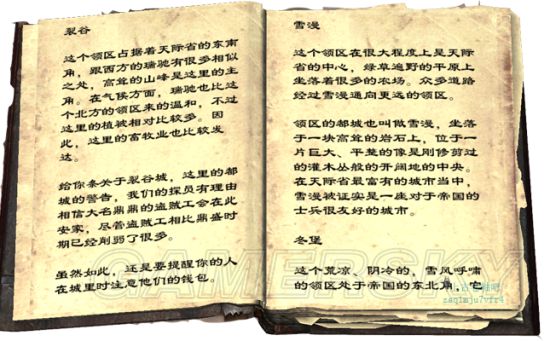 裂谷
这个领区占据着天际省的东南
角，跟西方的瑞驰有很多相似
之处，高耸的山峰是这里的主
角。在气候方面，瑞驰也比这
个北方的领区来的温和，不过
这里的植被相对比较多。因
此，这里的畜牧业也比较发
达。
给你条关于裂谷城，这里的都
城的警告，我们的探员有理由
相信大名鼎鼎的盗贼工会在此
安家，尽管盗贼工相比鼎盛时
期已经削弱了很多。
虽然如此，还是要提醒你的人
在城里时注意他们的钱包。
雪漫
这个领区在很大程度上是天际
省的中心，绿草遍野的平原上
坐落着很多的农场。众多道路
经过雪漫通向更远的领区。
领区的都城也叫做雪漫，坐落
于一块高耸的岩石上，位于一
片巨大、平整的像是刚修剪过
的灌木丛般的开阔地的中央。
在天际省最富有的城市当中，
雪漫被证实是一座对于帝国的
士兵很友好的城市。
冬堡
这个荒凉、阴冷的，雪风呼啸
的领区处于帝国的东北角，它
GAMERSKY
zaq1mju7vfr4